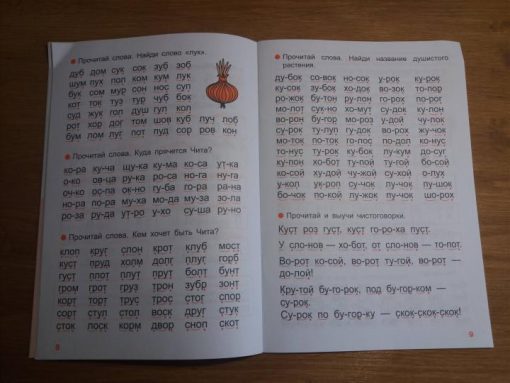 Прочитай слова. Найди слово «лук».
дуб дом сук сок зуб зоб
шум пух пол ком кум лук
бук сом мур сон нос суп
кот ток туз тур чуб бок
суд жук гол душ гул кол
рот хор дог том шов куб луч лоб
бум лом луг пот пуд сор ров кон
Прочитай слова. Куда прячется Чита?
ко-ра ку-ча щу-ка му-ка ко-са ут-ка
о-ко ов-ца ру-ка ро-са но-га ну-га
оч-ко ос-па ок-но гу-ба го-ра ра-на
но-ра по-ра му-ха мо-да му-за зо-ла
ро-за ру-да ут-ро у-хо су-ша ру-но
Прочитай слова. Кем хочет быть Чита?
клоп круг слон крот клуб мост
куст пруд холм долг плуг горб
густ плот плут прут болт бунт
гром грот груз трон зубр зонт
корт торт трус трос стог спор
сорт ступ стол воск друг стук
сток лоск корм двор сноп скот
8
Прочитай слова. Найди название душистого
растения.
ду-бок со-вок но-сок у-рок ку-рок
ку-сок зу-бок хо-док во-зок то-пор
ро-жок бу-тон ру-лон го-рох по-рог
мо-лот сук-но хо-мут су-док ку-лон
во-рон бу-гор мо-роз у-дой чу-лок
су-рок ту-луп гу-док во-рох жу-чок
мо-ток по-ток го-лос по-дол ко-нус
то-нус ту-рок ку-бок лу-кум до-суг
ку-пон хо-бот ту-пой ту-гой бо-сой
ко-сой ху-дой чу-жой су-хой о-пус
у-кол ук-роп су-чок пу-чок пу-шок
бо-чок пу-пок лу-жок пу-чок шо-рох
Прочитай и выучи чистоговорки.
Куст роз густ, куст го-ро-ха пуст.
У сло-нов — хо-бот, от сло-нов — то-пот.
Во-рот ко-сой, во-рот ту-гой, во-рот —
до-лой!
Кру-той бу-го-рок, под бу-гор-ком —
су-рок.
Су-рок по бу-гор-ку — скок-скок-скок!
9